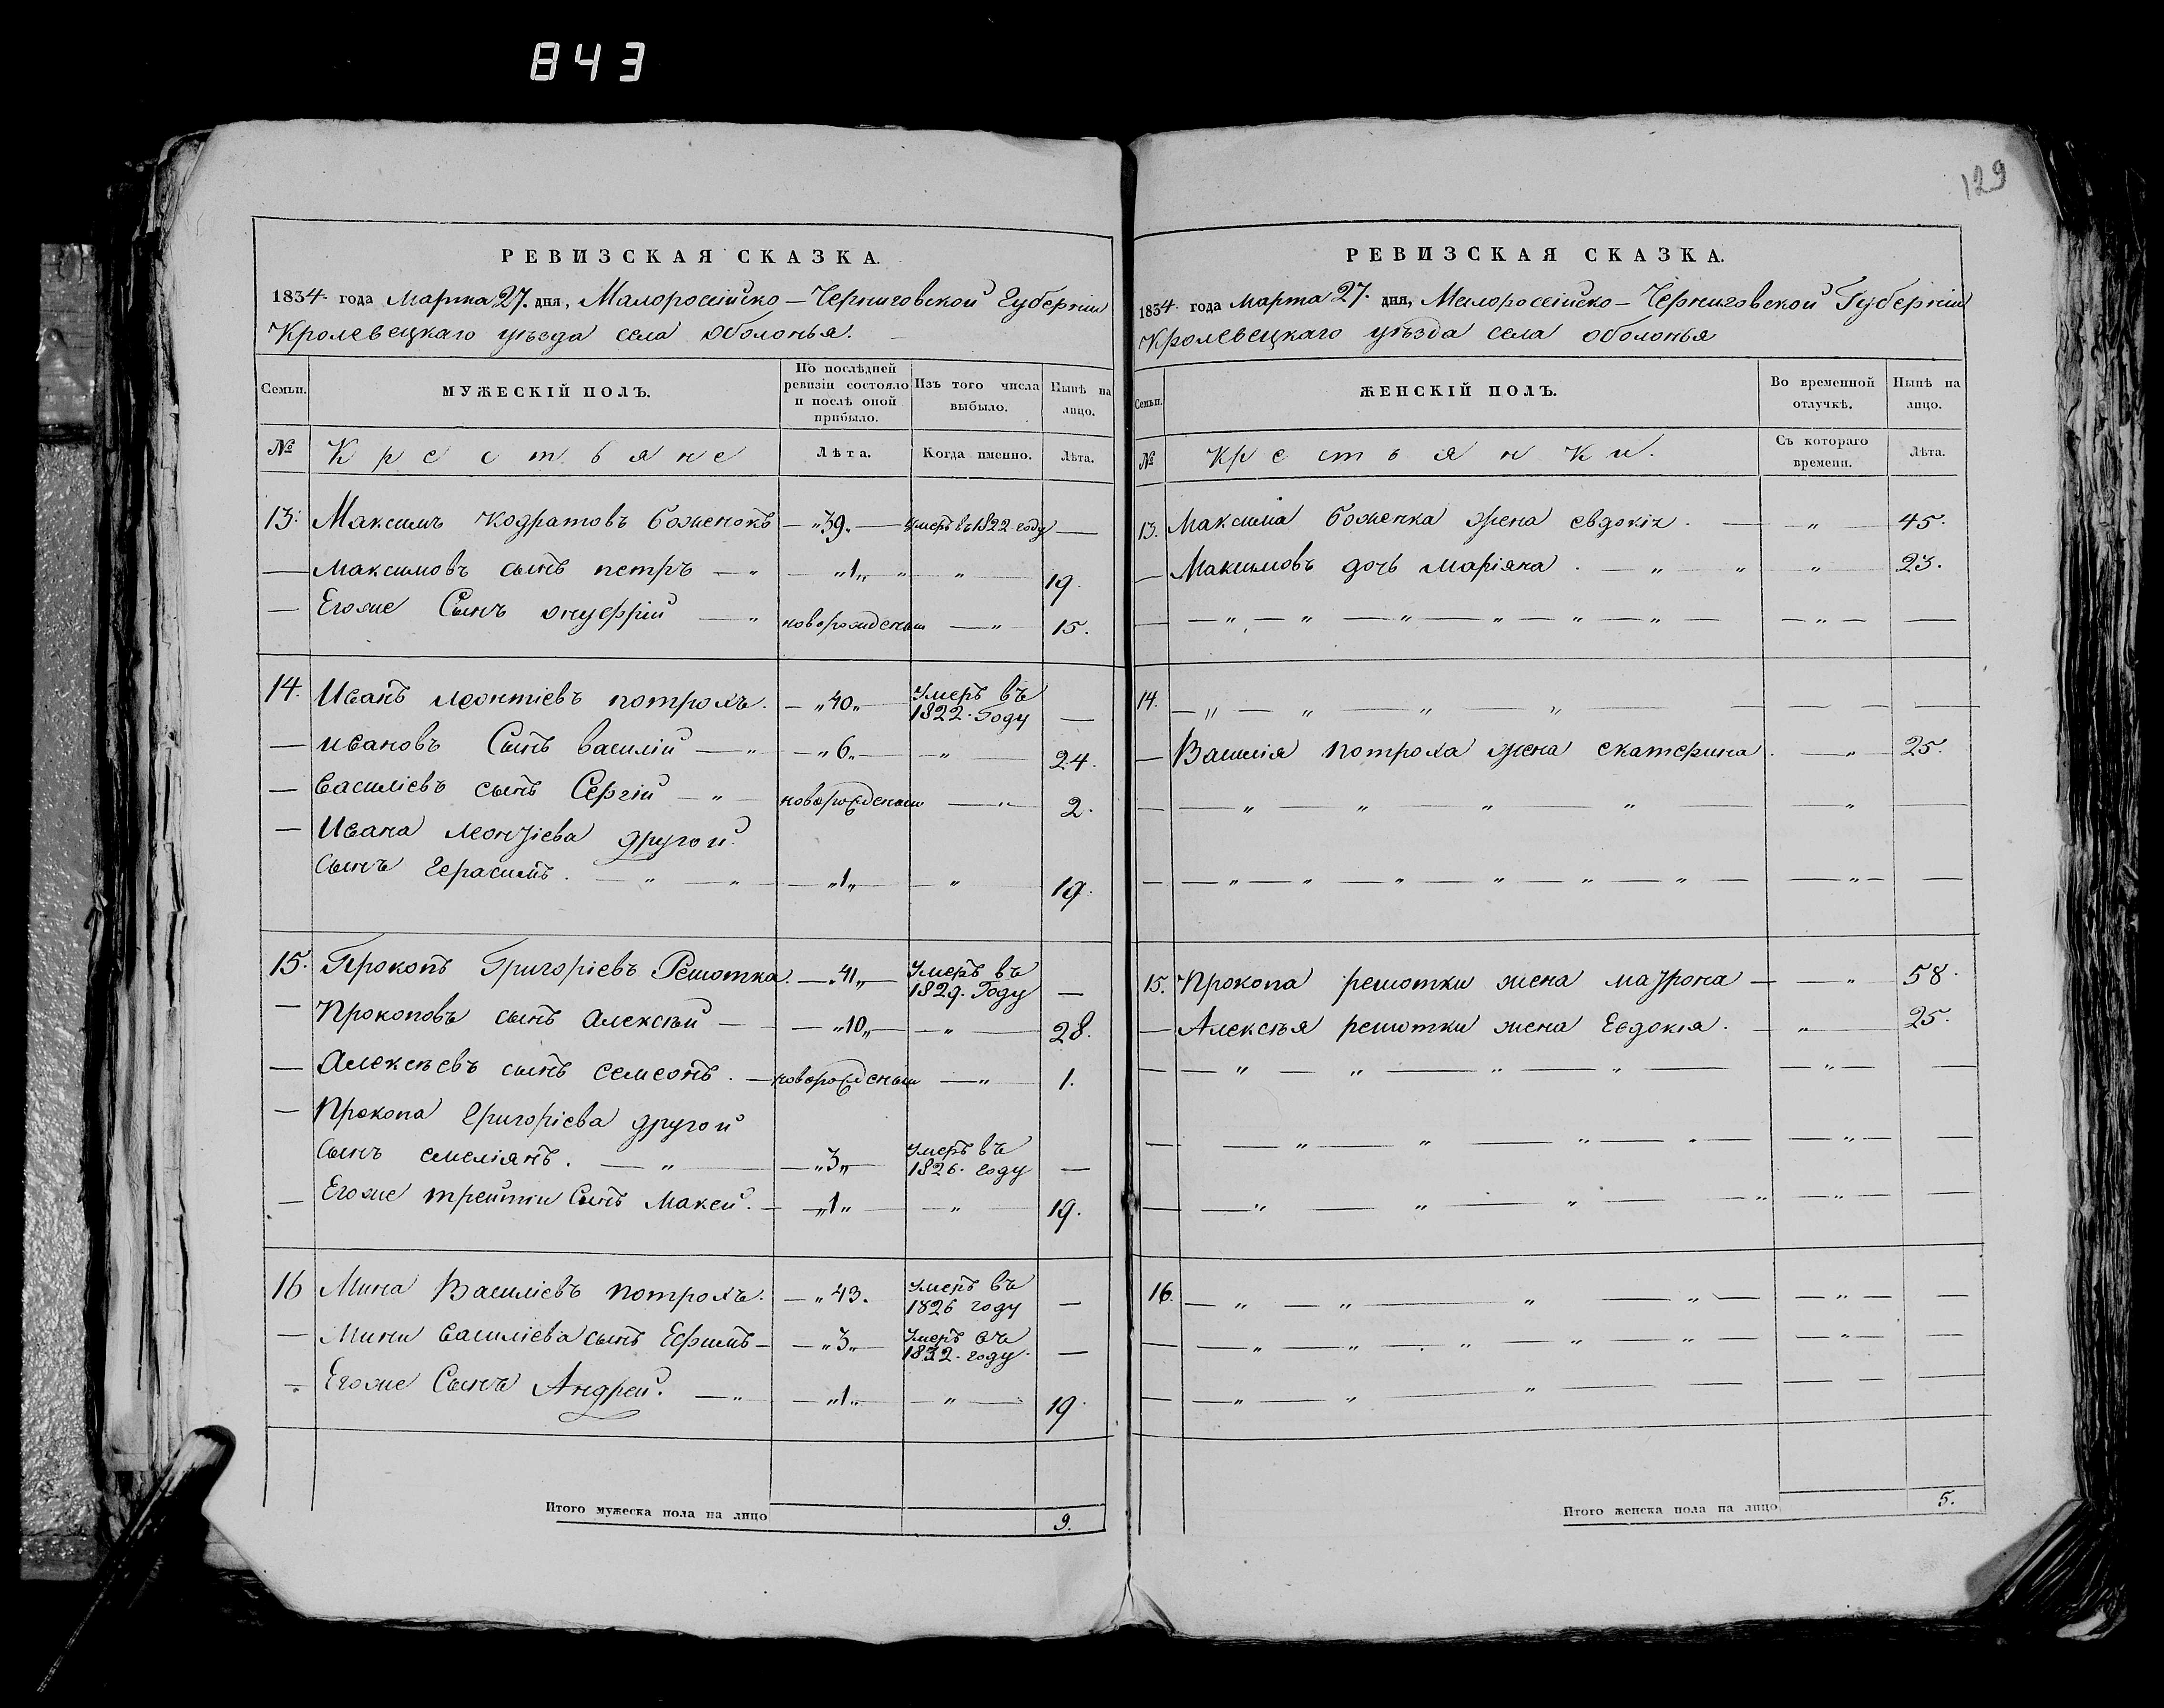 843
129
РЕВИЗСКАЯ СКАЗКА.
1834 года Марта 27. дня, Малороссійско — Черниговской Губерніи
Кролевецкаго уѣзда села Оболонья.
Семьи. МУЖЕСКІЙ ПОЛЪ. По послѣдней ревизіи состояло и послѣ оной прибыло. Изъ того числа выбыло. Нынѣ на лицо.
№ Крестьяне Лѣта. Когда именно. Лѣта.
13. Максимъ Кодратовъ Боженокъ — „39„ — умеръ въ 1822 году —
— Максимовъ сынъ петръ — „ „1„ „ „ — 19.
— Егоже Сынъ онуфрій — „ новорожденыи — „ 15.
14. Иванъ леонтіевъ потрохъ. — „40„ — Умеръ въ 1822. Году —
— ивановъ Сынъ василій — „ — „6„ — „ — 24.
— василіевъ сынъ Сергій — „ — новорожденыи — „ 2.
— Ивана леонтіева другой
сынъ герасимъ. — „ — „ — „1„ — „ 19.
15. Прокопъ Григоріевъ Решотка. — „41„ — Умеръ въ 1829. Году —
— Прокоповъ сынъ алексѣй — — „10„ — „ — 28.
— алексѣевъ сынъ семеонъ. — новорожденыи — „ 1.
— Прокопа григоріева другой
сынъ емеліянъ. — „ — — „3„ — Умеръ въ 1826. году —
— Егоже третіи Сынъ Макей. — „1„ — „ — 19.
16 Мина Василіевъ потрохъ. — „ 43. Умеръ въ 1826 году —
— Мини василіева сынъ Ефимъ — — „3„ — Умеръ въ 1832. году. —
— Егоже Сынъ Андрей. — „ — „1„ — „ — 19.
Итого мужеска пола на лицо 9.
РЕВИЗСКАЯ СКАЗКА.
1834 года марта 27. дня, Малороссійско — Черниговской Губерніи
Кролевецкаго уѣзда села оболонья
Семьи. ЖЕНСКІЙ ПОЛЪ. Во временной отлучкѣ. Нынѣ на лицо.
№ Крестьянки. Съ котораго времени. Лѣта.
13. Максима боженка жена евдокія. — „ — 45.
— Максимовъ дочь маріяна. — „ „ „ — 23.
— — „ — „ — „ — „ — „ — „ — — „ — —
14. — „ — „ — „ — „ — — — —
— Василія потроха жена екатерина. — „ — 25.
— — „ — „ — „ — „ — — „ —
— — „ — „ — „ — „ — „ — „ — — „ — —
15. Прокопа решотки жена матрона — — „ — 58.
— Алексѣя решотки жена Евдокія. — „ — 25.
— — „ — „ — „ — „ — — „ — —
— — „ — „ — „ — „ — — „ — —
— — „ — „ — „ — „ — „ — —
16. — „ — „ — „ — „ — — „ — —
— — „ — „ — „ — „ — „ — — „ — —
— — „ — „ — „ — — — — —
Итого женска пола на лицо 5.